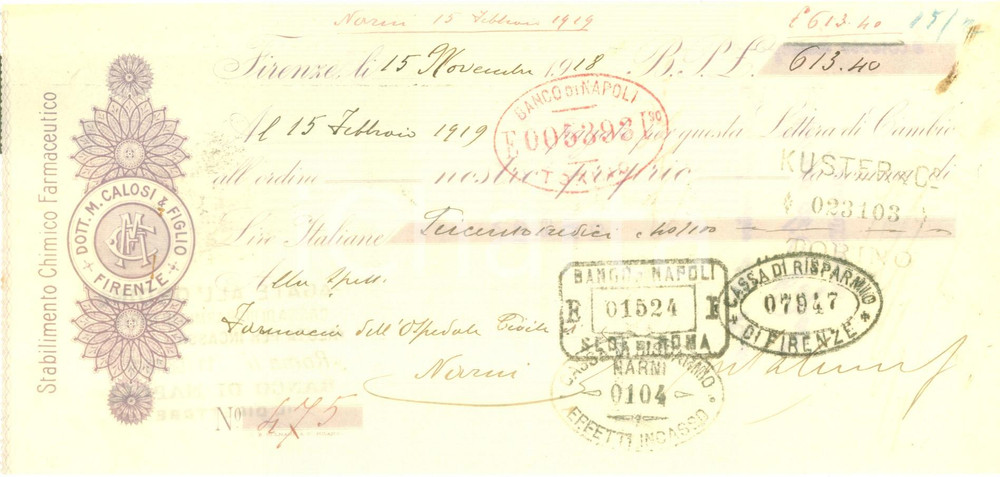 Narni 15 Febbraio 1919
£ 613.40
15/
Firenze, li 15 Novembre 1918 B. P. L. 613.40
Al 15 Febbraio 1919 per questa Lettera di Cambio
all'ordine nostro proprio la somma di
Lire Italiane Seicentotredici 40/100
Alla Spett.
Farmacia dell'Ospedale Civile
Narni
No 475
Stabilimento Chimico Farmaceutico
DOTT. M. CALOSI & FIGLIO
FIRENZE
BANCO DI NAPOLI
E 005393 E
KUSTER & Co
023103
TORINO
BANCO DI NAPOLI
E 01524 E
SEDE ROMA
CASSA DI RISPARMIO
07947
DI FIRENZE
CASSA DI RISPARMIO
NARNI
0104
EFFETTI INCASSO